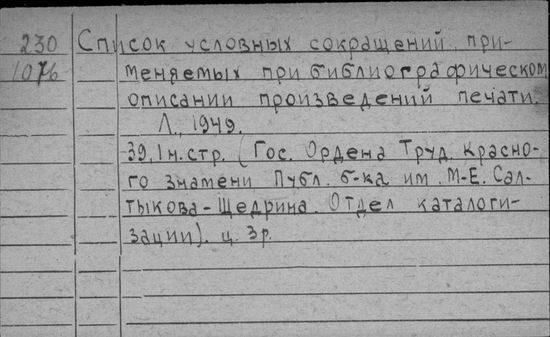 230 Список условных сокращений, при-
1076 меняемых при библиографическом
описании произведений печати.
Л., 1949.
39, 1 н. стр. (Гос. Ордена Труд. Красно-
го знамени Публ. б-ка им. М-Е. Сал-
тыкова-Щедрина. Отдел каталоги-
зации). ц. 3р.